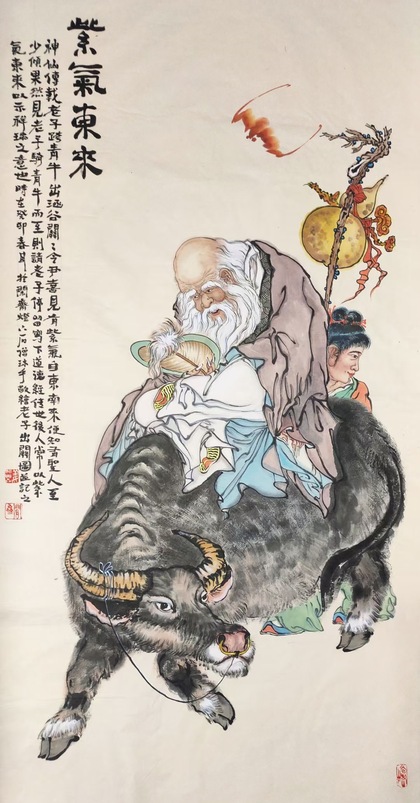 紫氣東來
神仙傳載老子跨青牛出涵谷關〻令尹喜見有紫氣自東南來便知有聖人至
少傾果然見老子騎青牛而至則請老子停留寫下道德經傳世後人常以紫
氣東來以示祥瑞之意也時在癸卯春月於 沐手敬繪老子出關圖並記之